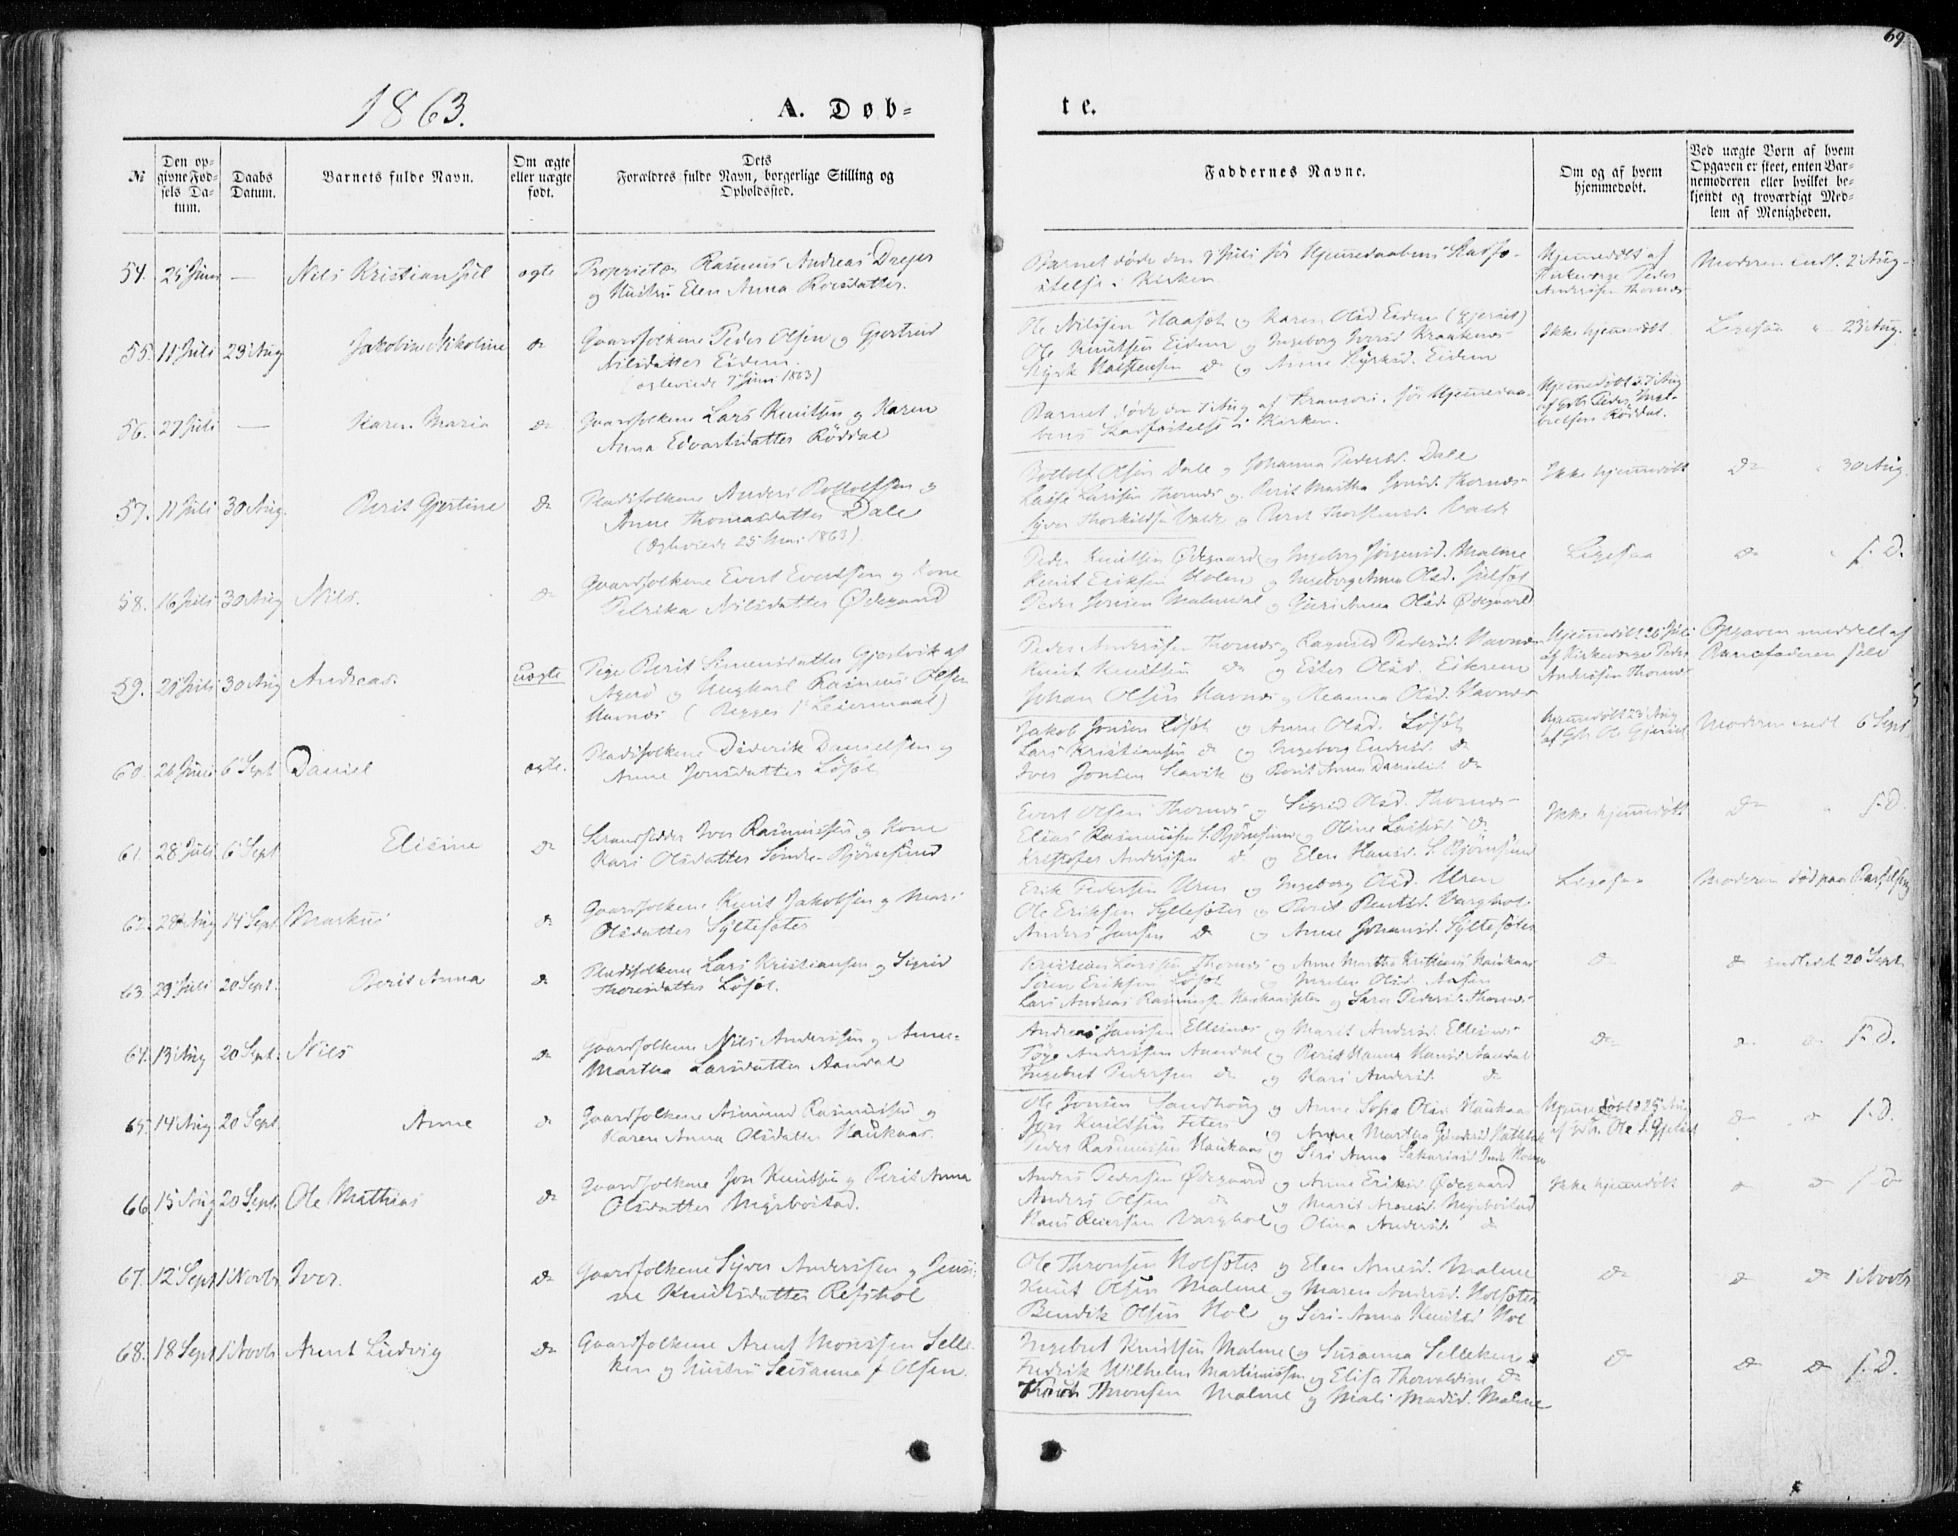 69
1863.
A. Døb=
te.
№
Den op=
givne Fød=
sels Da=
tum.
Daabs
Datum.
Barnets fulde Navn.
Om ægte
eller uægte
født.
Dets
Forældres fulde Navn, borgerlige Stilling og
Opholdssted.
Faddernes Navne.
Om og af hvem
hjemmedøbt.
Ved uægte Børn af hvem
Opgaven er skeet, enten Bar=
nemoderen eller hvilket be=
kjendt og troværdigt Med=
lem af Menigheden.
54. 25 Juni — Nils Kristian Juel ægte Proprietær Rasmus Andreas Dreyer
og Hustru Elen Anna Roesdatter.
Barnet døde den 9 Juli før Hjemmedaabens Stadfæ-
stelse i Kirken
Hjemmedøbt af
Kirkeværge Peder
Andersen Thornæs
Moderen indl. 2 Aug
55. 11 Juli 23 Aug Jakobine Nikoline do Gaardfolkene Peder Olsen og Gjertrud
Nilsdatter Eidem.
(ægteviede 7 Juni 1863)
Ole Nilssen Haasæt og Karen Olsd Eidem
Ole Knutsen Eidem og Ingeborg Iversd
do og Anne Eidem
Ikke hjemmedøbt
Ligesaa 23 Aug.
56. 27 Juli — Karen Maria do Gaardfolkene Lars Knutsen og Karen
Anna Edvartsdatter Røddal
Barnet døde den 7 Aug af Før Hjemmedaa-
bens Stadfæstelse i Kirken.
Hjemmedøbt 7 Aug
af Peder
Røddal.
57. 11 Juli 30 Aug. Berit Gjertine do Pladsfolkene Anders Bottolfsen og
Anne Thomasdatter Dale
(ægteviede 25 Mai 1863).
Bottolf Olsen Dale og Johanna Pedersd. Dale
Lasse Larssen Thornæs og Berit Martha Thornæs
Sjver Thorkildsen Valde og Berit Thorstensd. Valde
Ikke hjemmedøbt
do 30 Aug.
58. 16 Juli 30 Aug Nils. do Gaardfolkene Evert Evertsen og Kone
Petrika Nilsdatter Ødegaard
Peder Knutsen Ødegaard og Ingeborg Jørgensd. Malme
Knut Eriksen Holen og Ingeborg Anna Olsd.
Peder Jonsen Malmedal og Guri Anna Olsd. Ødegaard
Ligesaa
do s. D.
59. 25 Juli 30 Aug Andreas. uægte Pige Berit Simensdatter Gjerdvik af
Agerø og Ungkarl Rasmus Olsen
Havnæs (Begges 1ste Leiermaal)
Peder Anderssen Thornæs og Ragnild Pedersd. Havnæs
Knut Knutsen do og Ester Olsd. Eikrem
Johan Olsen Havnæs og Oleanna Olsd. Havnæs
Hjemmedøbt 26 Juli
af Kirkeværge Peder
Anderssen Thornæs
Opgaven meddelt af
Barnefaderen selv
60. 26 Juni 6 Sept Daniel ægte. Pladsfolkene Diderik Danielsen og
Anne Jonsdatter Løset
Jakob Jonsen Løset og Anne Olsd. Løset
Lars Kristiansen do og Ingeborg Endresd. do
Iver Jonsen Slavik og Berit Anna Danielsd. do
Hjemmedøbt 23 Aug
af Ole
Moderen indl 6 Sept.
61. 28 Juli 6 Sept Elisine do Strandsidder Iver Rasmussen og Kone
Kari Olsdatter Søndre-Bjørnesund
Evert Olsen Thornæs og Sigrid Olsd. Thornæs
Elias Rasmussen S. Bjørnsund og Oline do
Kristofer Andersen do og Elen Hansd. S. Bjørnsund
Ikke hjemmedøbt
do s. D.
62. 28 Aug 14 Sept Markus do Gaardfolkene Knut Jakobsen og Mari
Olsdatter Syltesæter
Erik Pedersen Uren og Ingeborg Olsd. Uren
Ole Eriksen Syltesæter og Berit Bendtsd. Varghol
Anders Jansen do og Anne Johansd. Syltesæter
Ligesaa
Moderen død paa Barselseng
63. 29 Juli 20 Sept. Berit Anna do Pladsfolkene Lars Kristiansen og Sigrid
Thoresdatter Løset.
Kristian Larssen Thornæs og Anne Martha Haukaas
Søren Eriksen Løset og Olsd. Aasen
Lars Andreas Rasmussen og Sara Pedersd. Thornæs
do
do indledt 20 Sept.
64. 13 Aug 20 Sept. Nils do Gaardfolkene Nils Anderssen og Anne-
Martha Larsdatter Aandal
Andreas Janssen Ellesnæs og Marit Andersd Ellesnæs
Anderssen Aandal og Berit Hanna Hansd Aandal
Ingebret Pedersen do og Kari Andersd. do
do
do do s. D.
65. 14 Aug. 20 Sept. Anne do Gaardfolkene Asmund Rasmussen og
Karen Anna Olsdatter Haukaas
Ole Jonsen Sandhoug og Anne Sofia Olsd. Haukaas
Jon Knutsen og Anne Martha
Peder Rasmussen Haukaas og Siri Anna
Hjemmedøbt 25 Aug
af Ole
do do s. D.
66. 15 Aug 20 Sept. Ole Mathias do Gaardfolkene Jon Knutsen og Berit Anna
Olsdatter Mysbostad.
Anders Pedersen Ødegaard og Anne Eriksd Ødegaard
Anders Olsen do og Marit Arnesd. Mysbostad
Hans Reiersen Varghol og Olina Andersd. do
Ikke hjemmedøbt
do do s. D.
67. 12 Sept 1 Novbr Iver. do Gaardfolkene Sjver Anderssen og Jensi-
ne Knutsdatter Refshol
Ole Thronsen Holsæter og Elen Arnesd. Malme
Knut Olsen Malme og Maren Andersd. Holsæter
Bendik Olsen Hol og Siri-Anna Knutsd Hol
do
do do 1 Novbr
68. 18 Sept 1 Novbr Arent Ludvig do Gaardfolkene Arent Monssen Selle-
ken og Hustru Susanna f Olsen.
Ingebret Knutsen Malme og Susanna Selleken
Fredrik Wilhelm Martinussen og Elise Thorvaldine do
Knut Thronsen Malme og Mali Madsd. Malme
do
do do s. D.